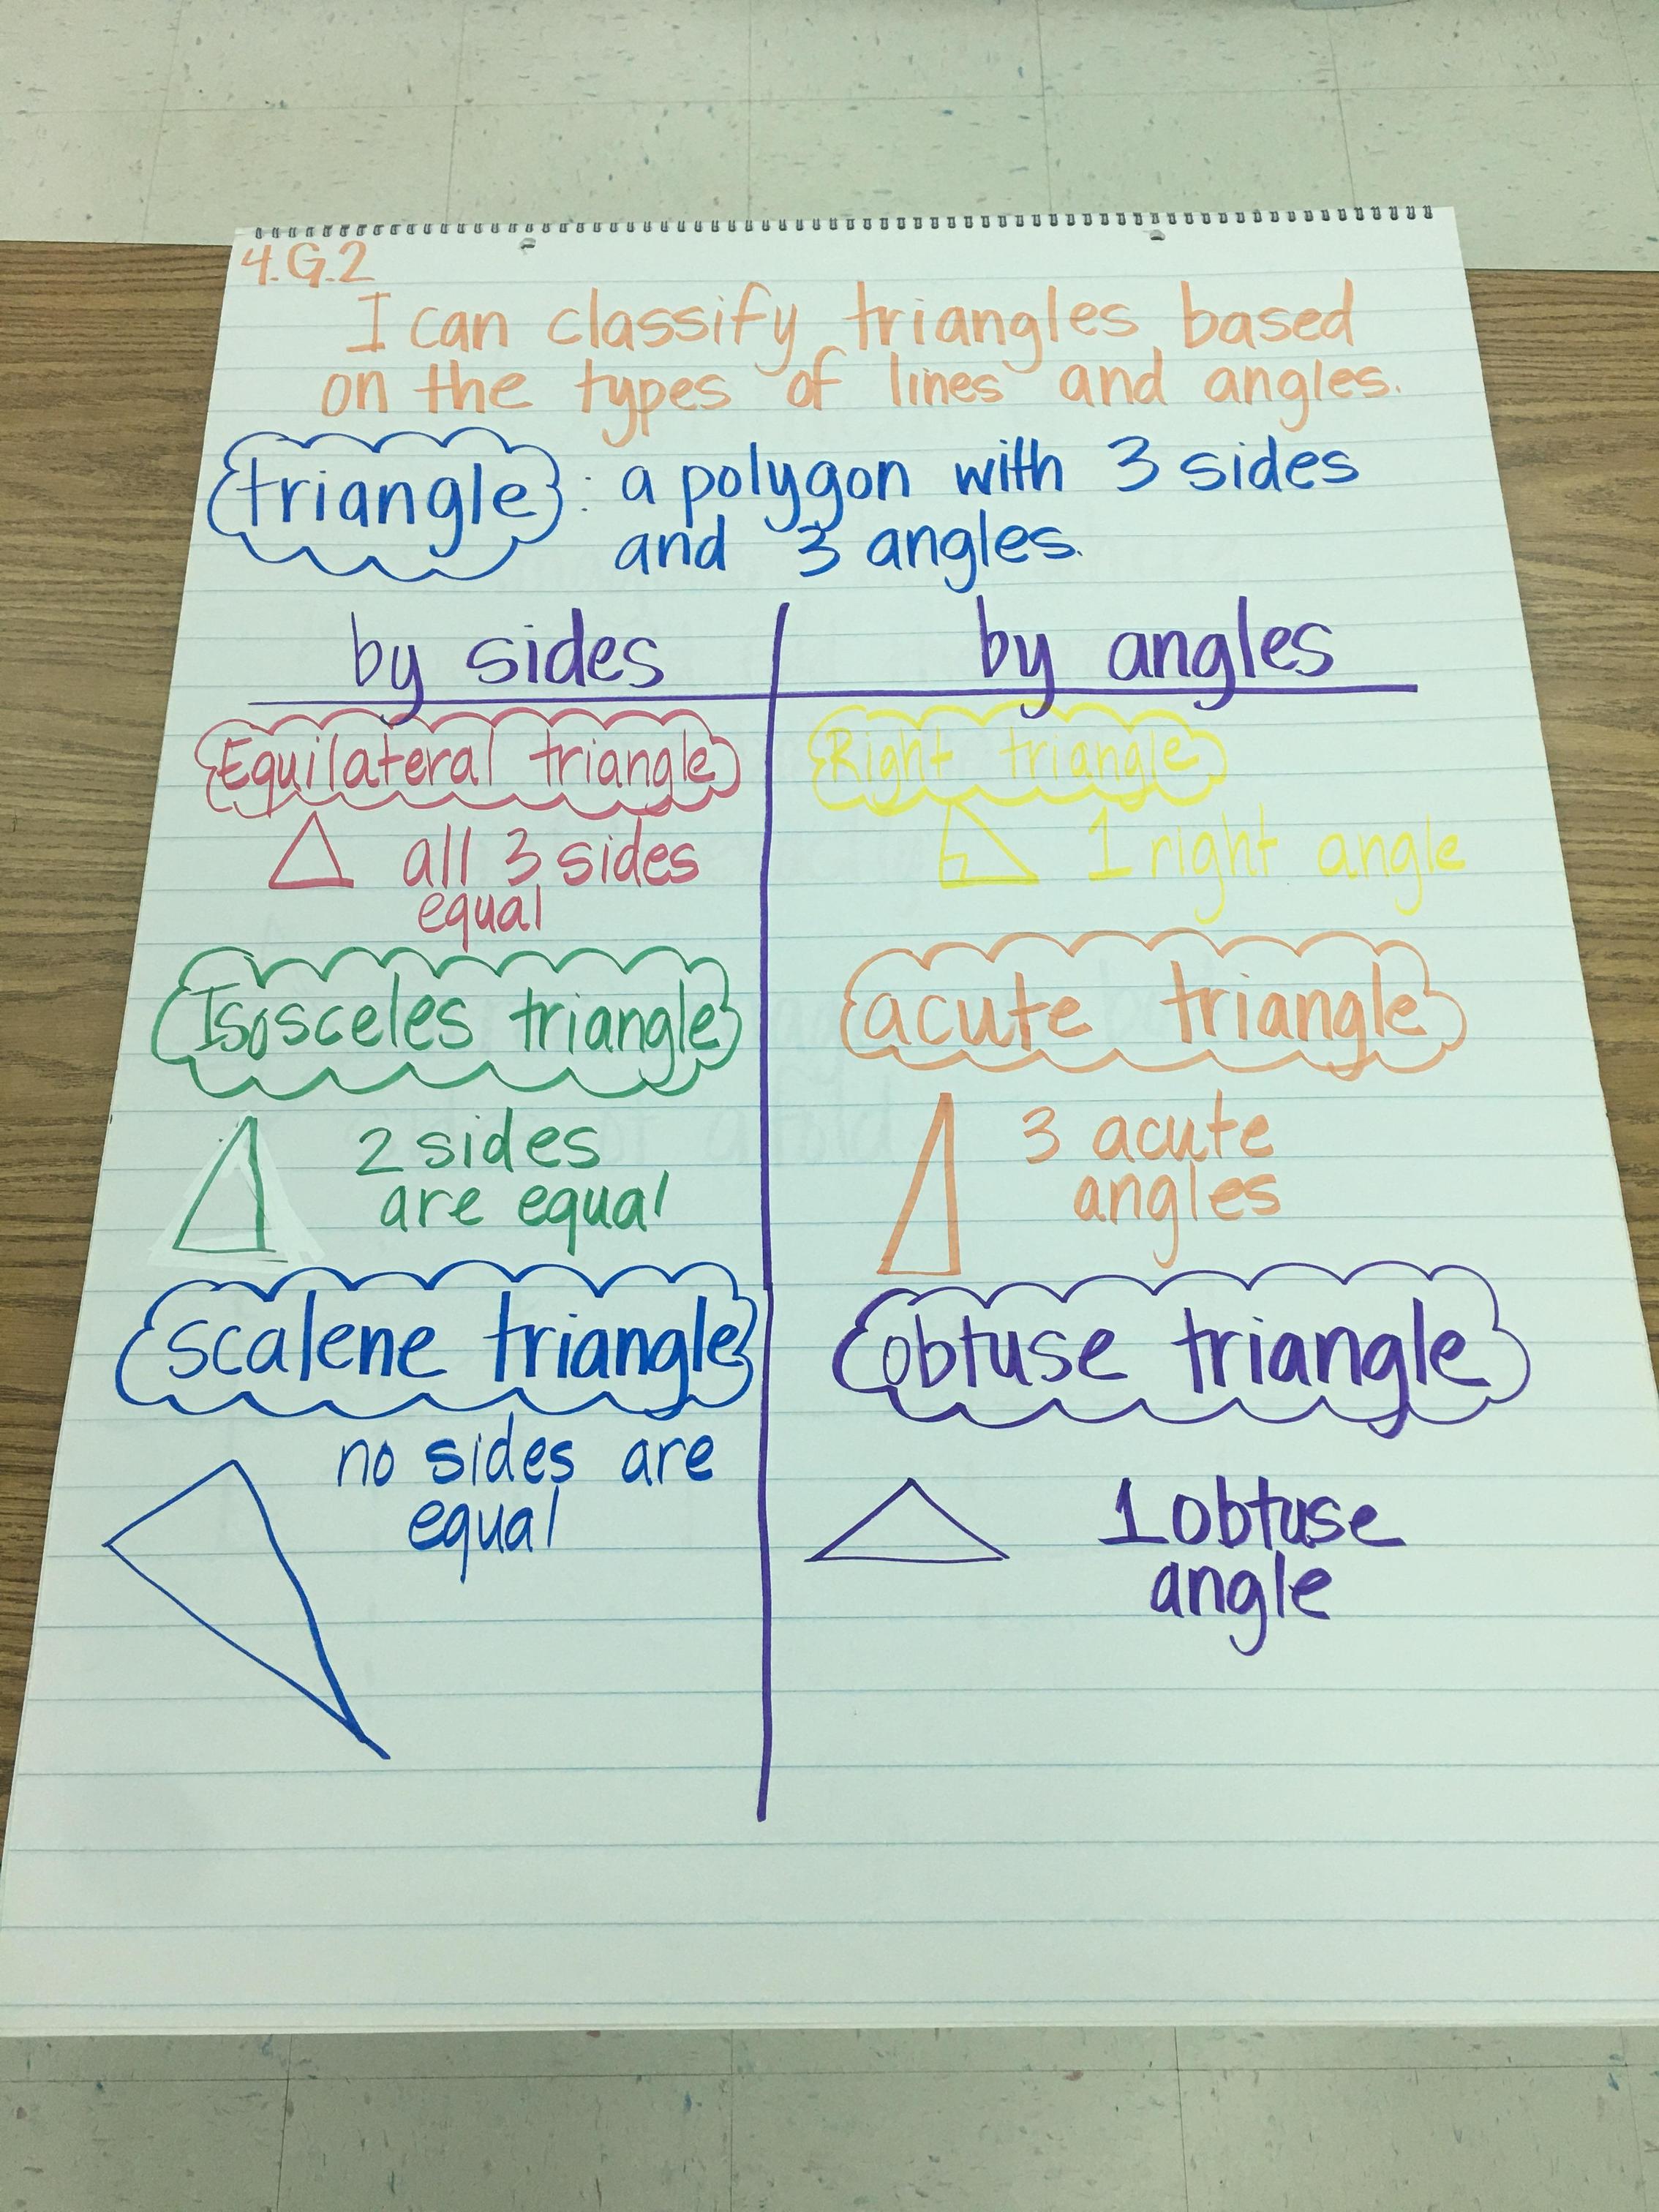 4.G.2
I can classify triangles based
on the types of lines and angles.
triangle: a polygon with 3 sides
and 3 angles.
by sides
Equilateral triangle
all 3 sides
equal
Isosceles triangle
2 sides
are equal
scalene triangle
no sides are
equal
by angles
Right triangle
1 right angle
acute triangle
3 acute
angles
obtuse triangle
1 obtuse
angle